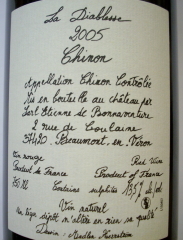 La Diablesse
2005
Chinon
Appellation Chinon Contrôlée
Mis en bouteille au château par
Earl Etienne de Bonnaventure
2 rue de Coulaine
37420 Beaumont en Véron
Vin rouge Red Wine
Product de France Product of France
Contains sulphites 13.5% de vol
Vin naturel
un léger dépôt n'altère en rien sa qualité
Dessin :